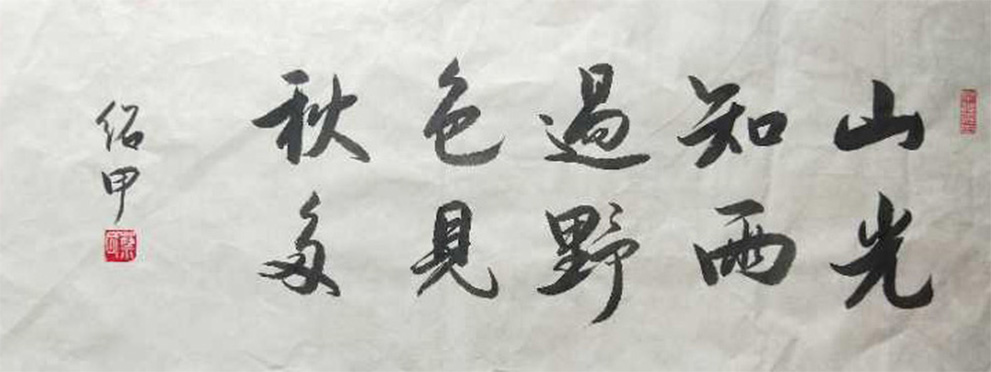 山光
知雨
過野
色見
秋多
绍甲